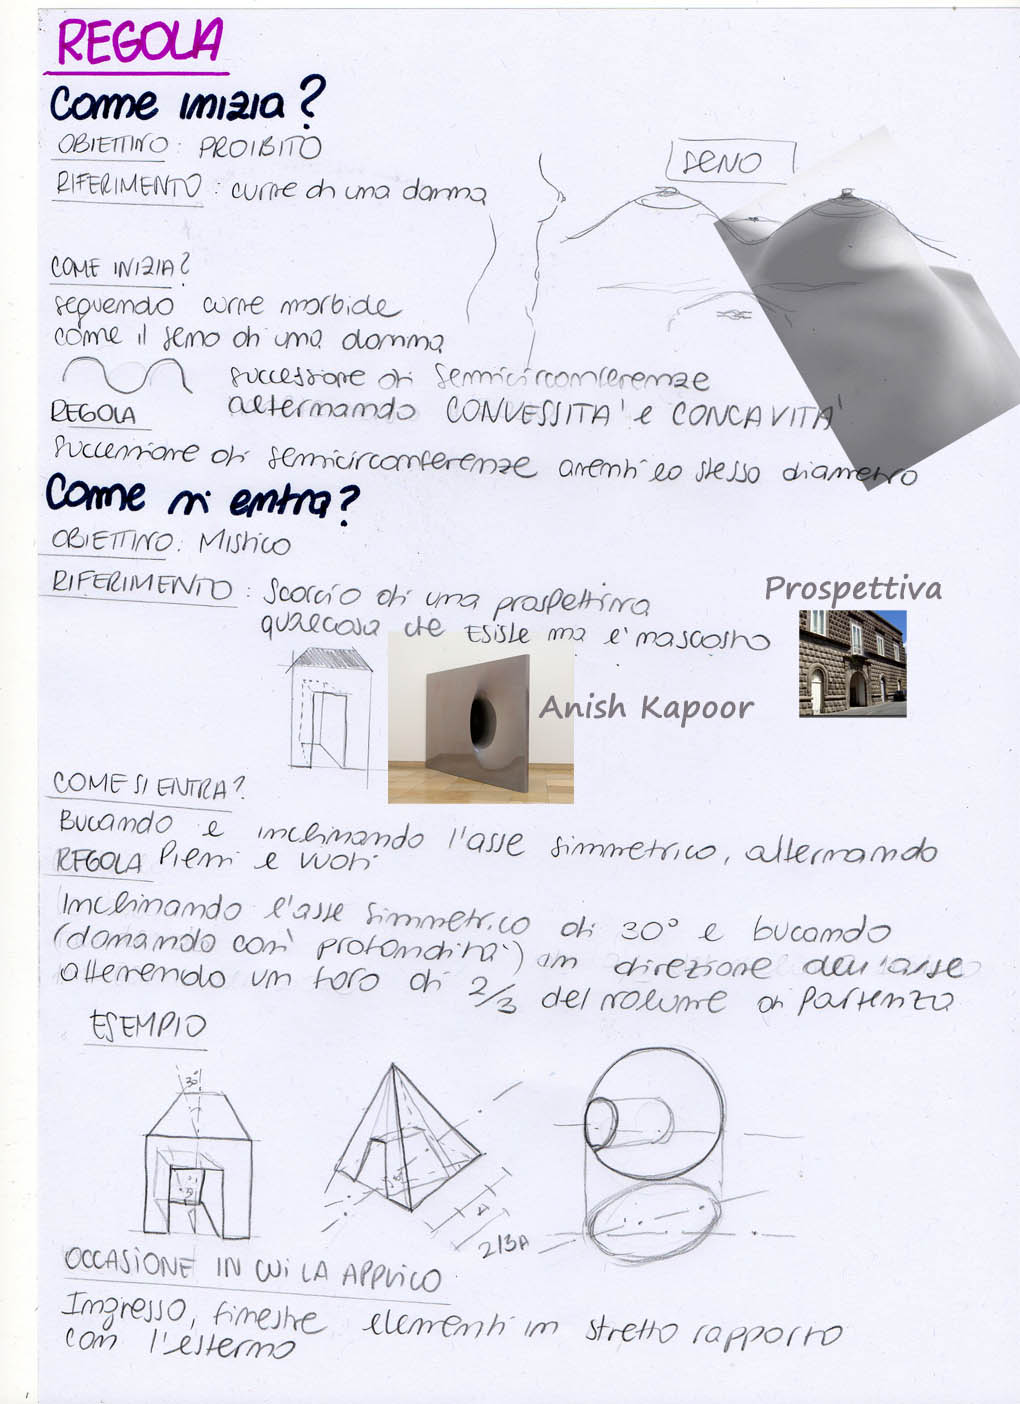 REGOLA
Come inizia?
OBIETTIVO: PROIBITO
RIFERIMENTO: curve di una donna
SENO
COME INIZIA?
seguendo curve morbide
come il seno di una donna
successione di semicirconferenze
alternando CONVESSITA' e CONCAVITA'
REGOLA
successione di semicirconferenze aventi lo stesso diametro
Come si entra?
OBIETTIVO: Mistico
RIFERIMENTO: Scorcio di una prospettiva
qualcosa che ESISTE ma e' nascosto
Prospettiva
Anish Kapoor
COME SI ENTRA?
Bucando e inclinando l'asse simmetrico, alternando
Pieni e vuoti
REGOLA
Inclinando l'asse simmetrico di 30° e bucando
(donando così profondità) in direzione dell'asse
ottenendo un foro di 2/3 del volume di partenza
ESEMPIO
30°
2/3A
OCCASIONE IN CUI LA APPLICO
Ingresso, finestre elementi in stretto rapporto
con l'esterno